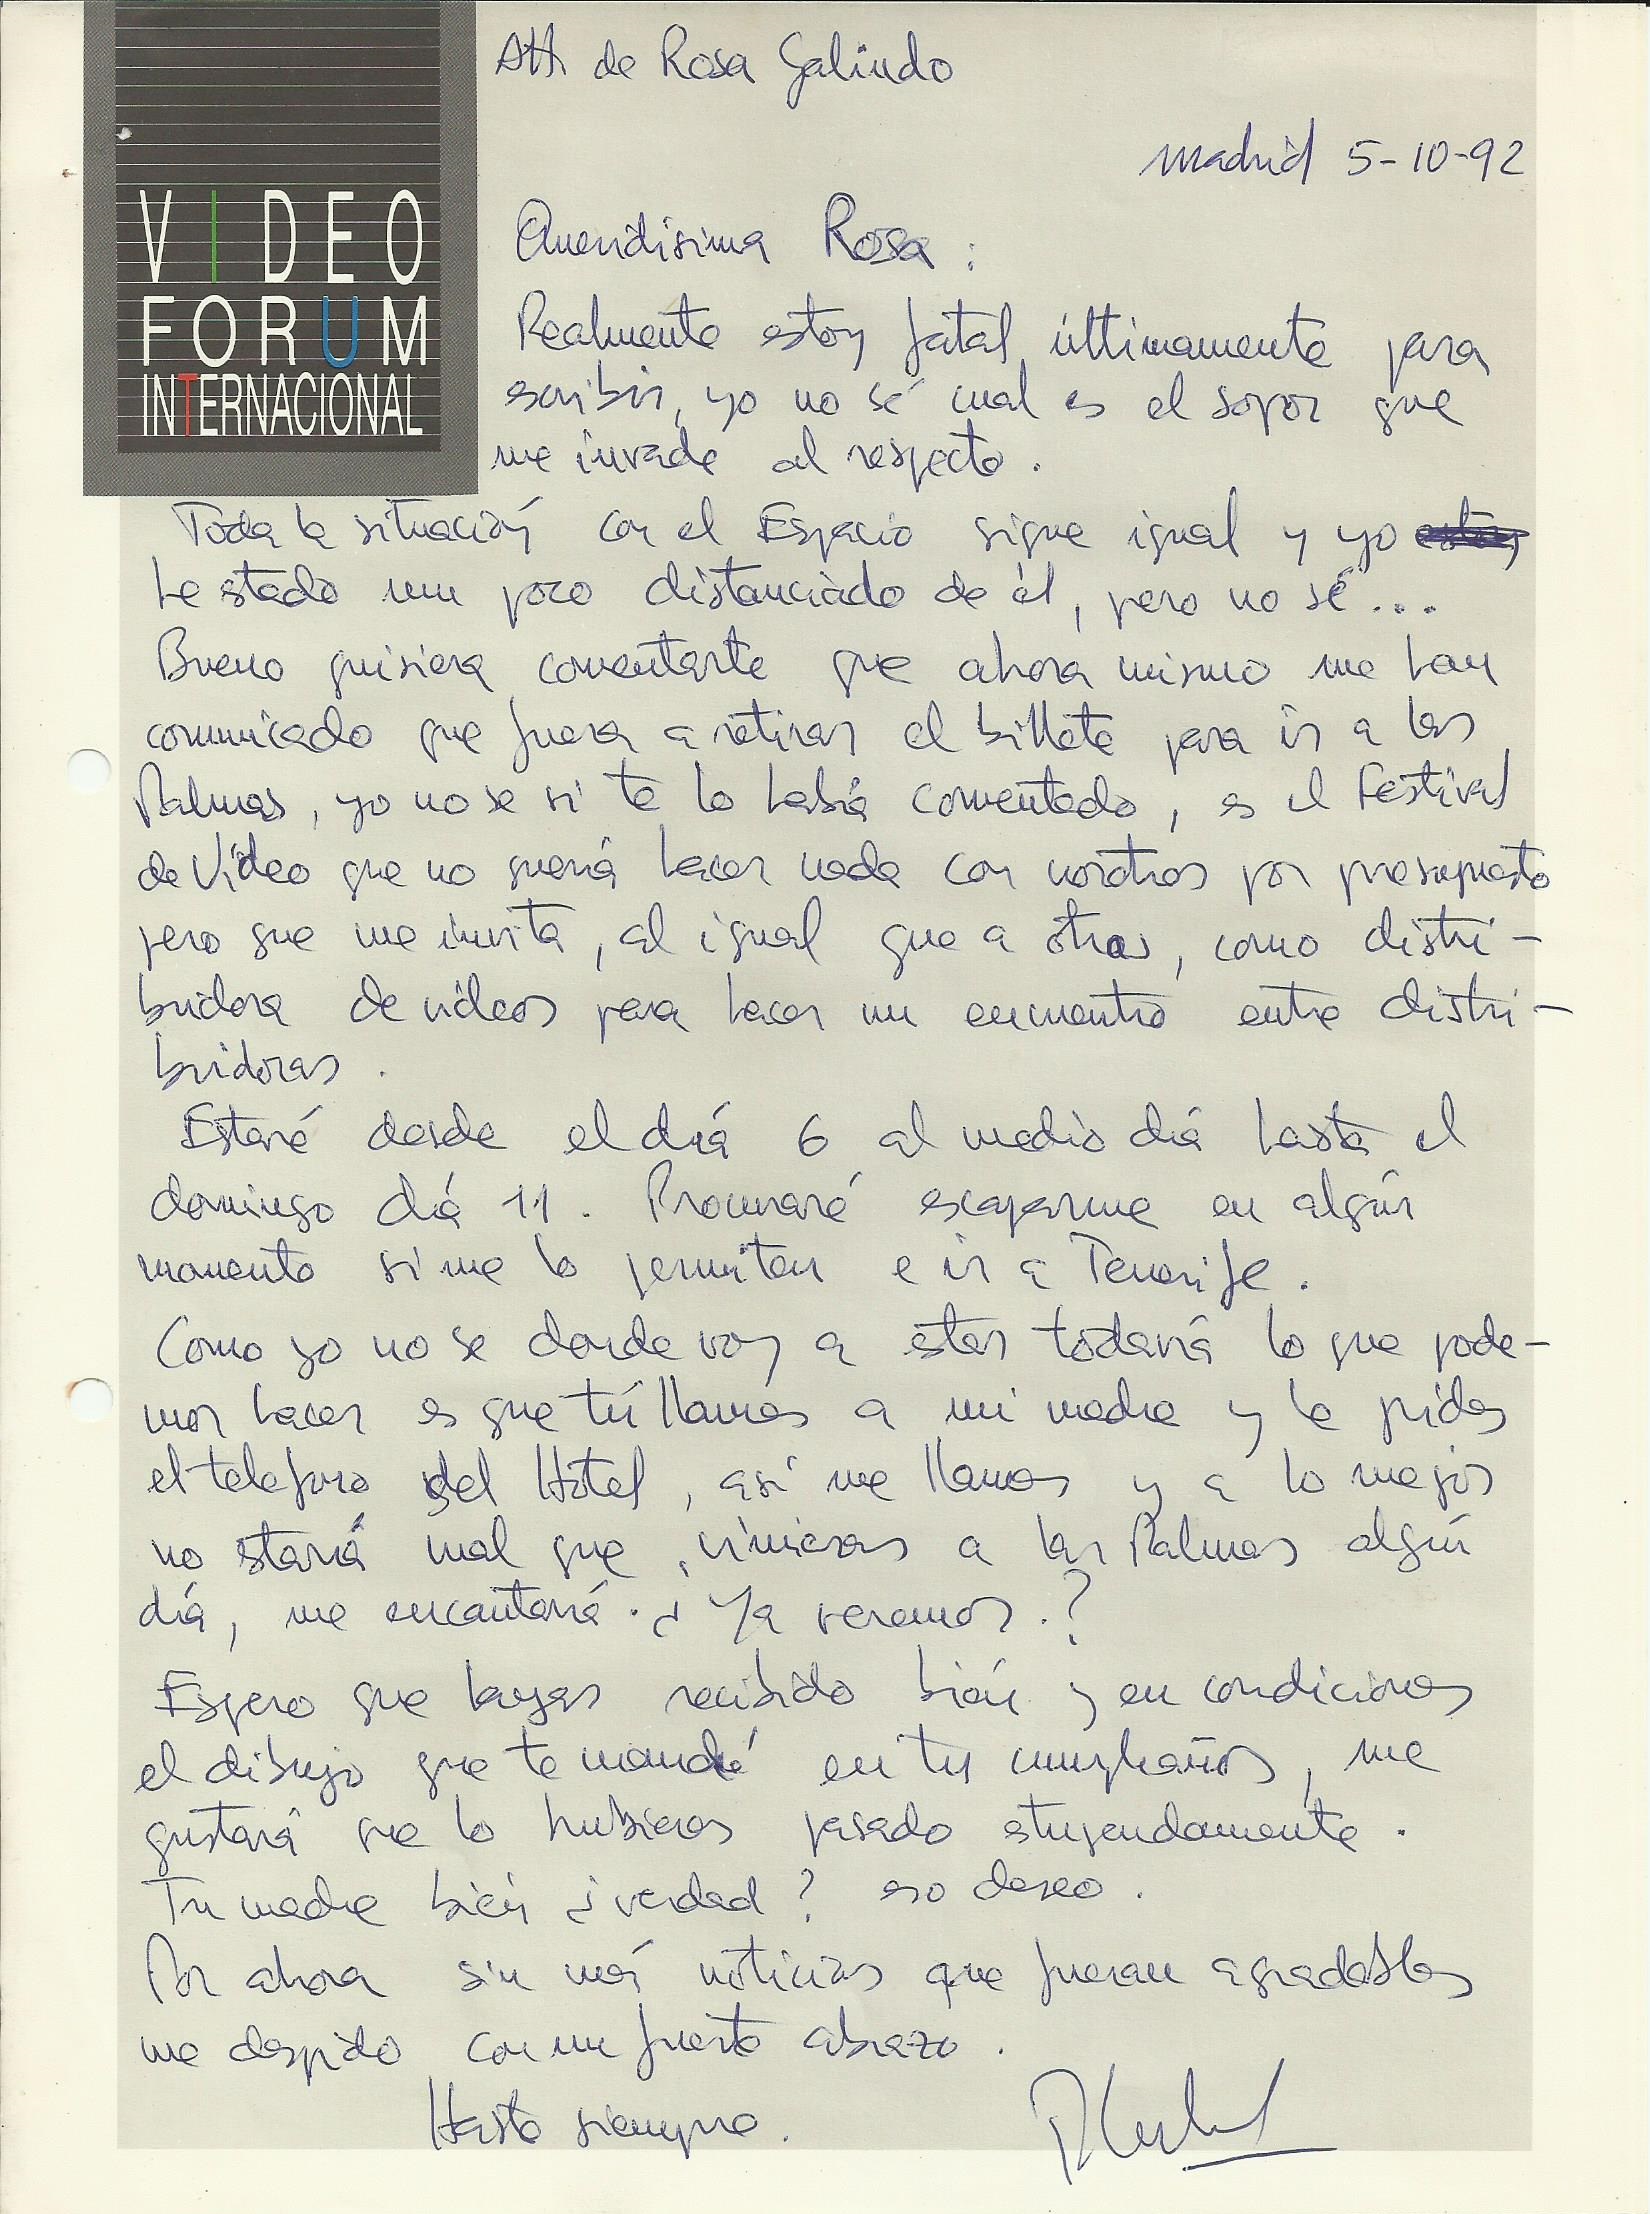 VIDEO
FORUM
INTERNACIONAL
Att de Rosa Galindo
Madrid 5-10-92
Queridisima Rosa:
Realmente estoy fatal últimamente para
escribir, yo no sé cual es el sopor que
me invade al respecto.
Toda la situación con el Espacio sigue igual y yo
he estado un poco distanciado de él, pero no sé...
Bueno quisiera comentarte que ahora mismo me han
comunicado que fuera a retirar el billete para ir a Las
Palmas, yo no se si te lo había comentado, es el Festival
de Vídeo que no quería hacer nada con nosotros por presupuesto
pero que me invita, al igual que a otras, como distri-
buidora de vídeos para hacer un encuentro entre distri-
buidoras.
Estaré desde el día 6 al medio día hasta el
domingo día 11. Procuraré escaparme en algún
momento si me lo permiten e ir a Tenerife.
Como yo no se donde voy a estar todavía lo que pode-
mos hacer es que tú llames a mi madre y le pides
el telefono del Hotel, así me llamas y a lo mejor
no estaría mal que vinieras a las Palmas algún
día, me encantaría. ¿Ya veremos.?
Espero que hayas recibido bién y en condiciones
el dibujo que te mandé en tu cumpleaños, me
gustaría que lo hubieras pasado estupendamente.
Tu madre bién ¿verdad? eso deseo.
Por ahora sin más noticias que fueran agradables
me despido con un fuerte abrazo.
Hasta siempre.